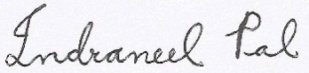 Indraneel Pal